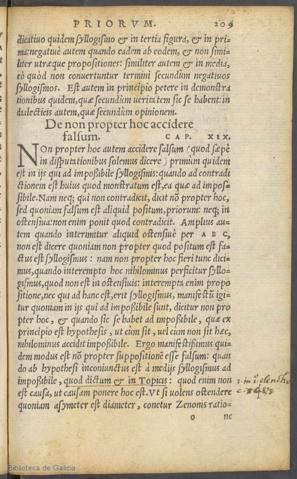 PRIORVM. 209
dicatiuo quidem syllogismo & in tertia figura, & in pri
ma:negatiuè autem quando eadem ab eodem, & non simi-
liter vtræque propositiones: similiter autem & in media,
eò quòd non conuertuntur termini secundùm negatiuos
syllogismos. Est autem in principio petere in demonstra
tionibus quidem, quæ secundùm veritatem sic se habent: in
dialecticis autem, quæ secundùm opinionem.
De non propter hoc accidere
falsum. CAP. XIX.
NOn propter hoc autem accidere falsum (quod sæpè
in disputationibus solemus dicere) primùm quidem
est in ijs qui ad impoßibile syllogismis: quando ad contradi
ctionem est huius quod monstratum est, ea quæ ad impos-
sibile. Nam neq; qui non contradicit, dicit nō propter hoc,
sed quoniam falsum est aliquid positum, priorum: neq; in
ostensiua: non enim ponit quod contradicit. Amplius au-
tem quando interimitur aliquid ostensiuè per ABC,
non est dicere quoniam non propter quod positum est fa-
ctus est syllogismus: nam non propter hoc fieri tunc dici-
mus, quando interempto hoc nihilominus perficitur syllo-
gismus, quod non est in ostensiuis: interempta enim propo
sitione, nec qui ad hanc est, erit syllogismus, manifestū igi-
tur quoniam in ijs qui ad impoßibile sunt, dicitur non pro
pter hoc, & quando sic se habet ad impoßibile, quæ ex
principio est hypothesis, vt cùm sit, vel cùm non sit hæc,
nihilominus accidit impoßibile. Ergo manifestißimus qui-
dem modus est nō propter suppositionē esse falsum: quan
do ab hypothesi inconiunctus est à medijs syllogismus ad
impoßibile, quod dictum & in Topicis: quod enim non
est causa, vt causam ponere hoc est. Vt si volens ostendere
quoniam asymeter est diameter, conetur Zenonis ratio-
o ne
Biblioteca de Galicia